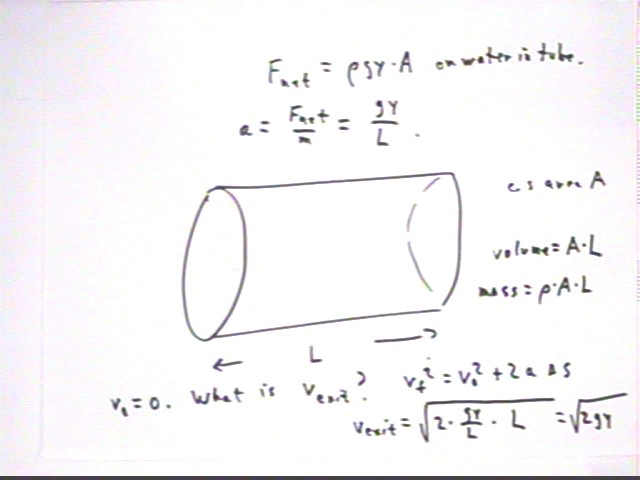 F_net = ρgy·A on water in tube.
a = F_net/m = gy/L .
cs area A
volume = A·L
mass = ρ·A·L
← L →
v₀ = 0. What is v_exit? v_f² = v₀² + 2a Δs
v_exit = √(2·gy/L·L) = √(2gy)